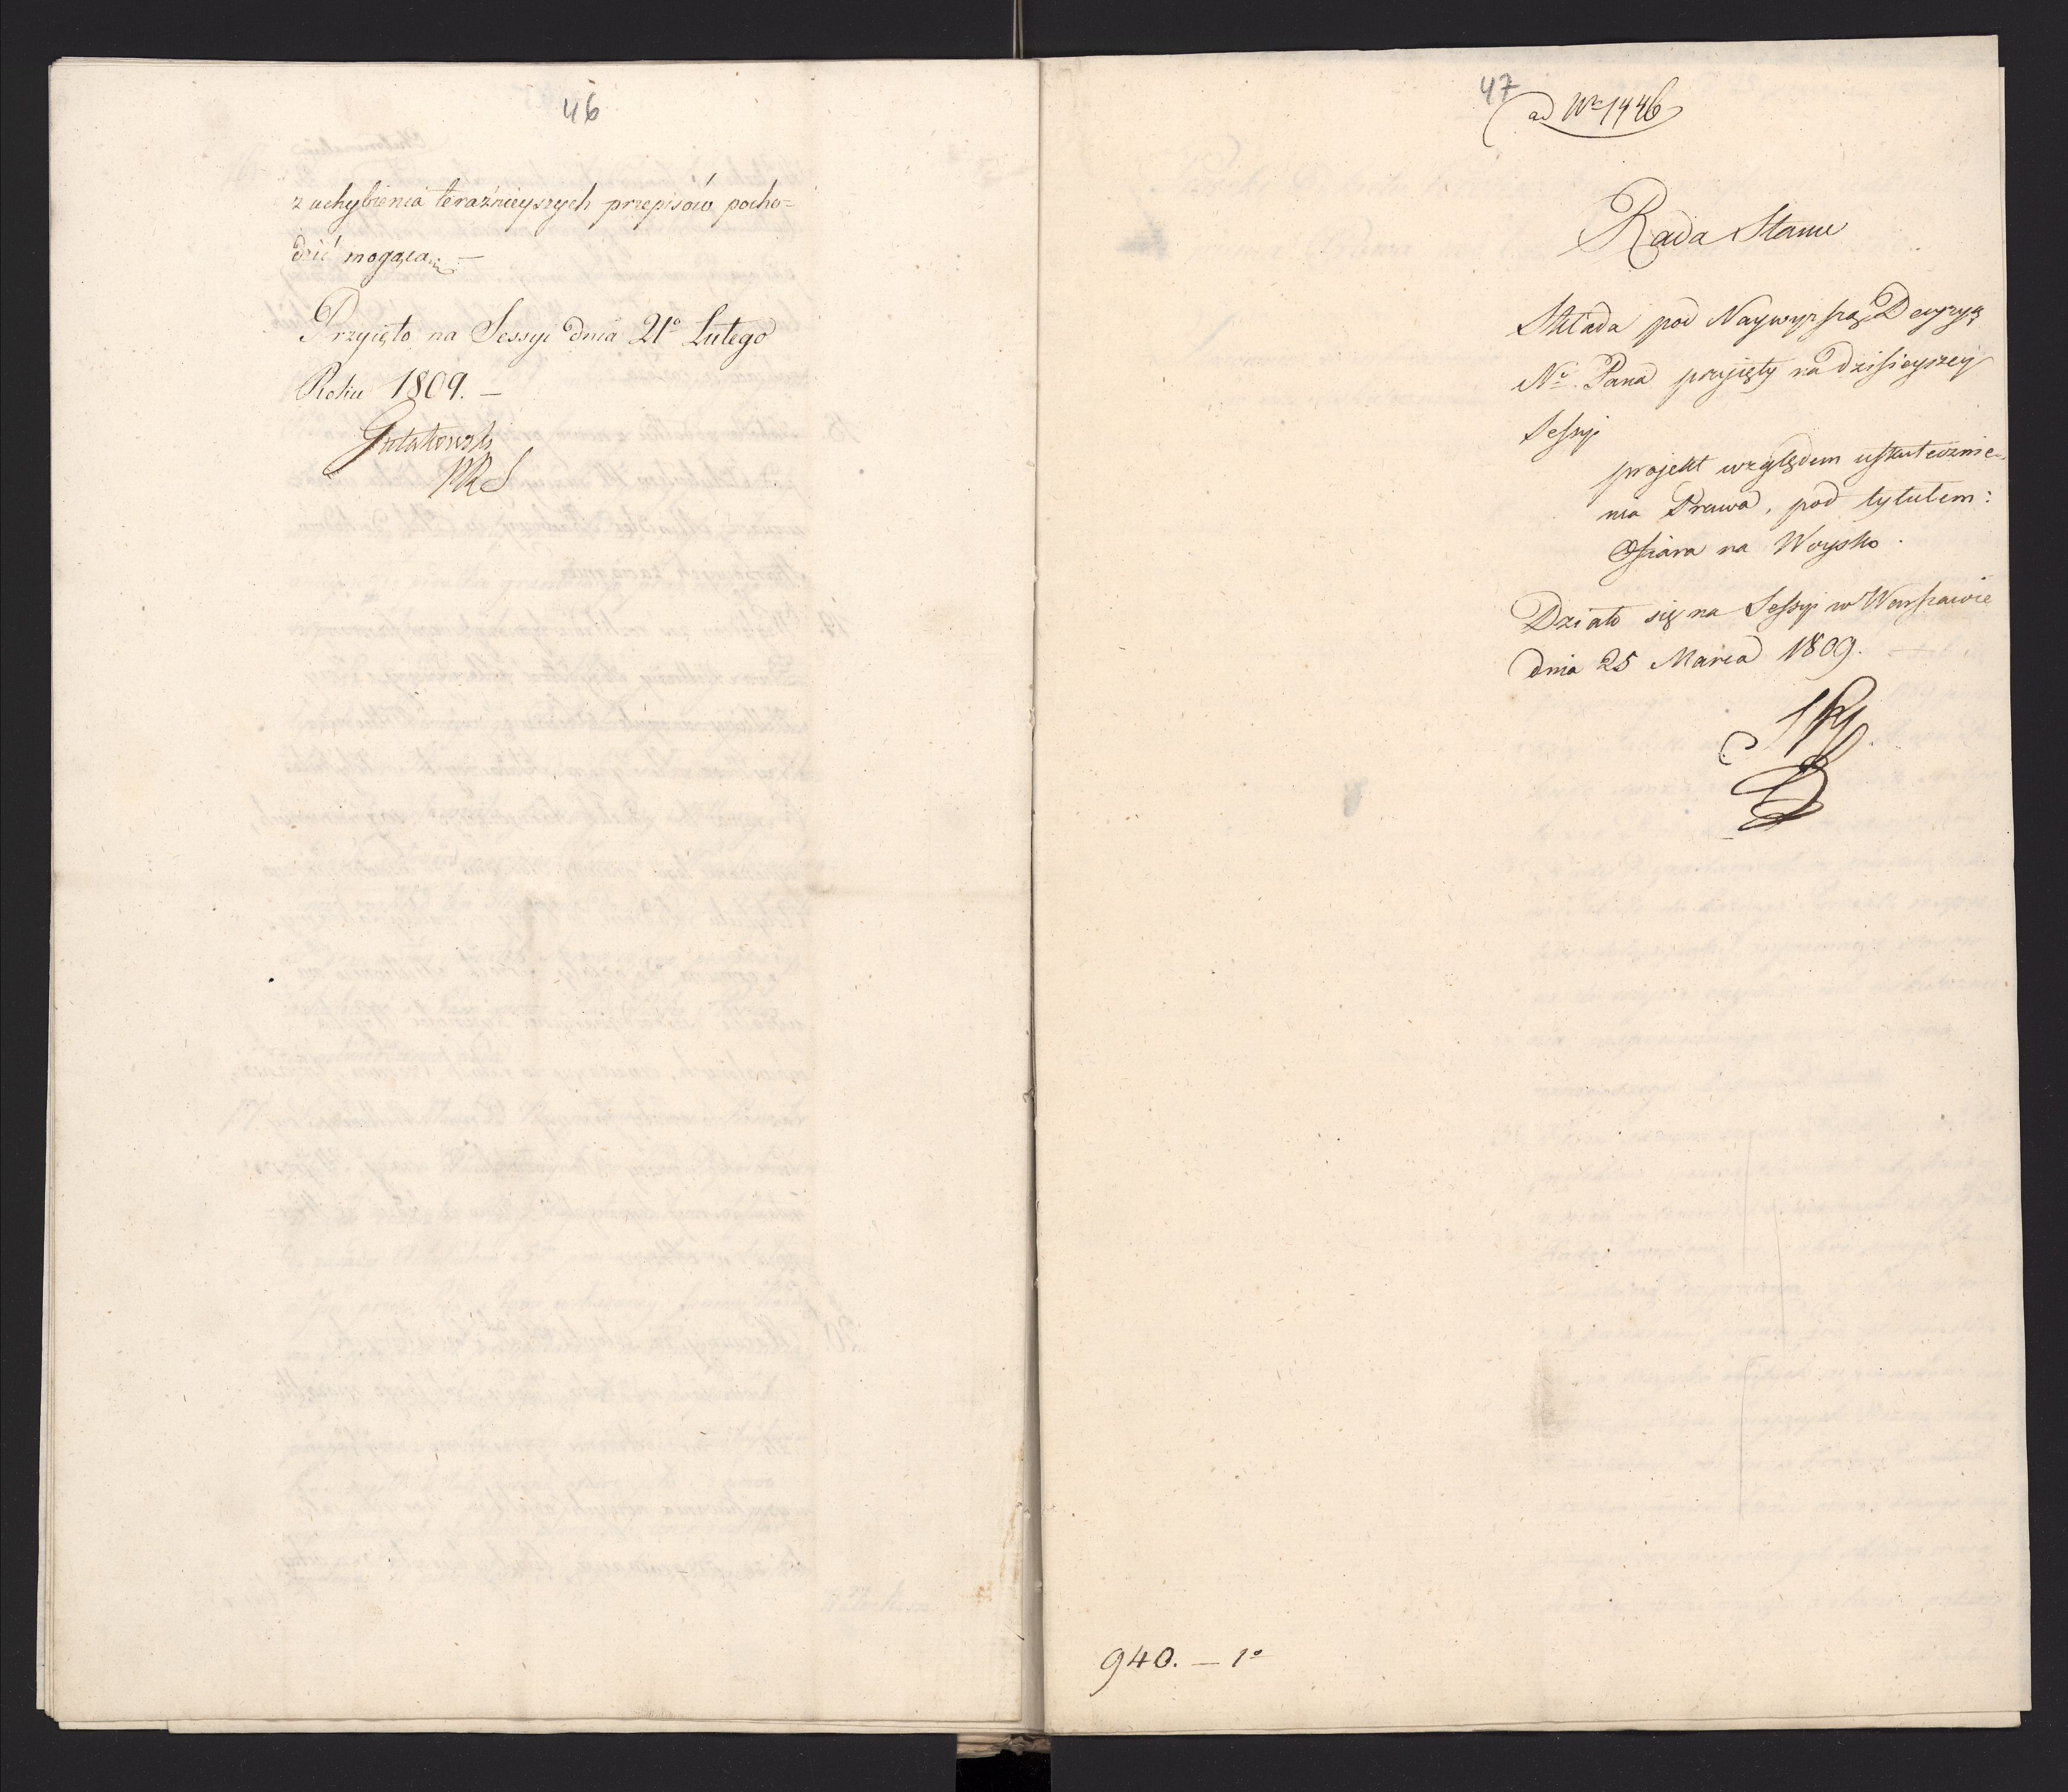 46
z uchybienia teraźnieyszych przepisów pocho=
dzić mogąca. —
Przyięto na Sessyi dnia 21° Lutego
Roku 1809. —
Gutakowski
PRS
47
ad Nr 1446
Rada Stanu
Składa pod Naywyższą Decyzyą
No. Pana przyięty na dzisieyszey
Sessyi
projekt względem uskutecznie-
nia Prawa, pod tytułem:
Ofiara na Woysko.
Działo się na Sessyi w Warszawie
dnia 25 Marca 1809.
940. — 1°